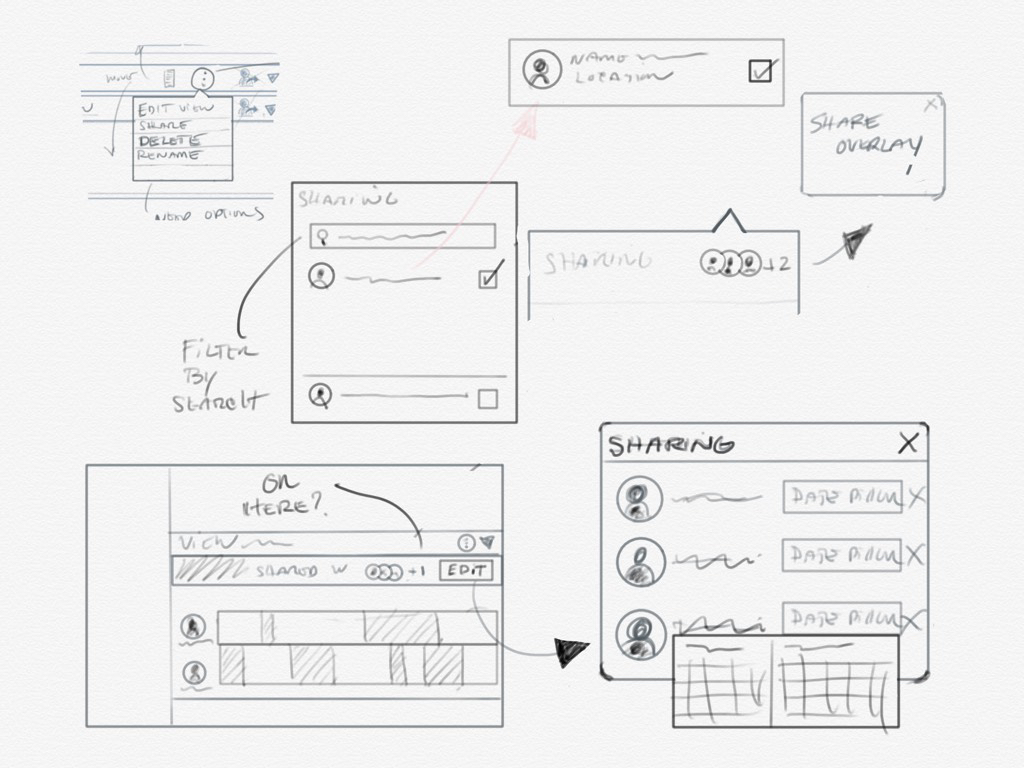 EDIT VIEW
SHARE
DELETE
RENAME
OPTIONS
NAME
LOCATION
SHARE
OVERLAY
X
SHARING
FILTER
BY
SEARCH
SHARING
+2
OR
HERE?
VIEW
SHARED W +1 EDIT
SHARING X
DATE PICKER X
DATE PICKER X
DATE PICKER X